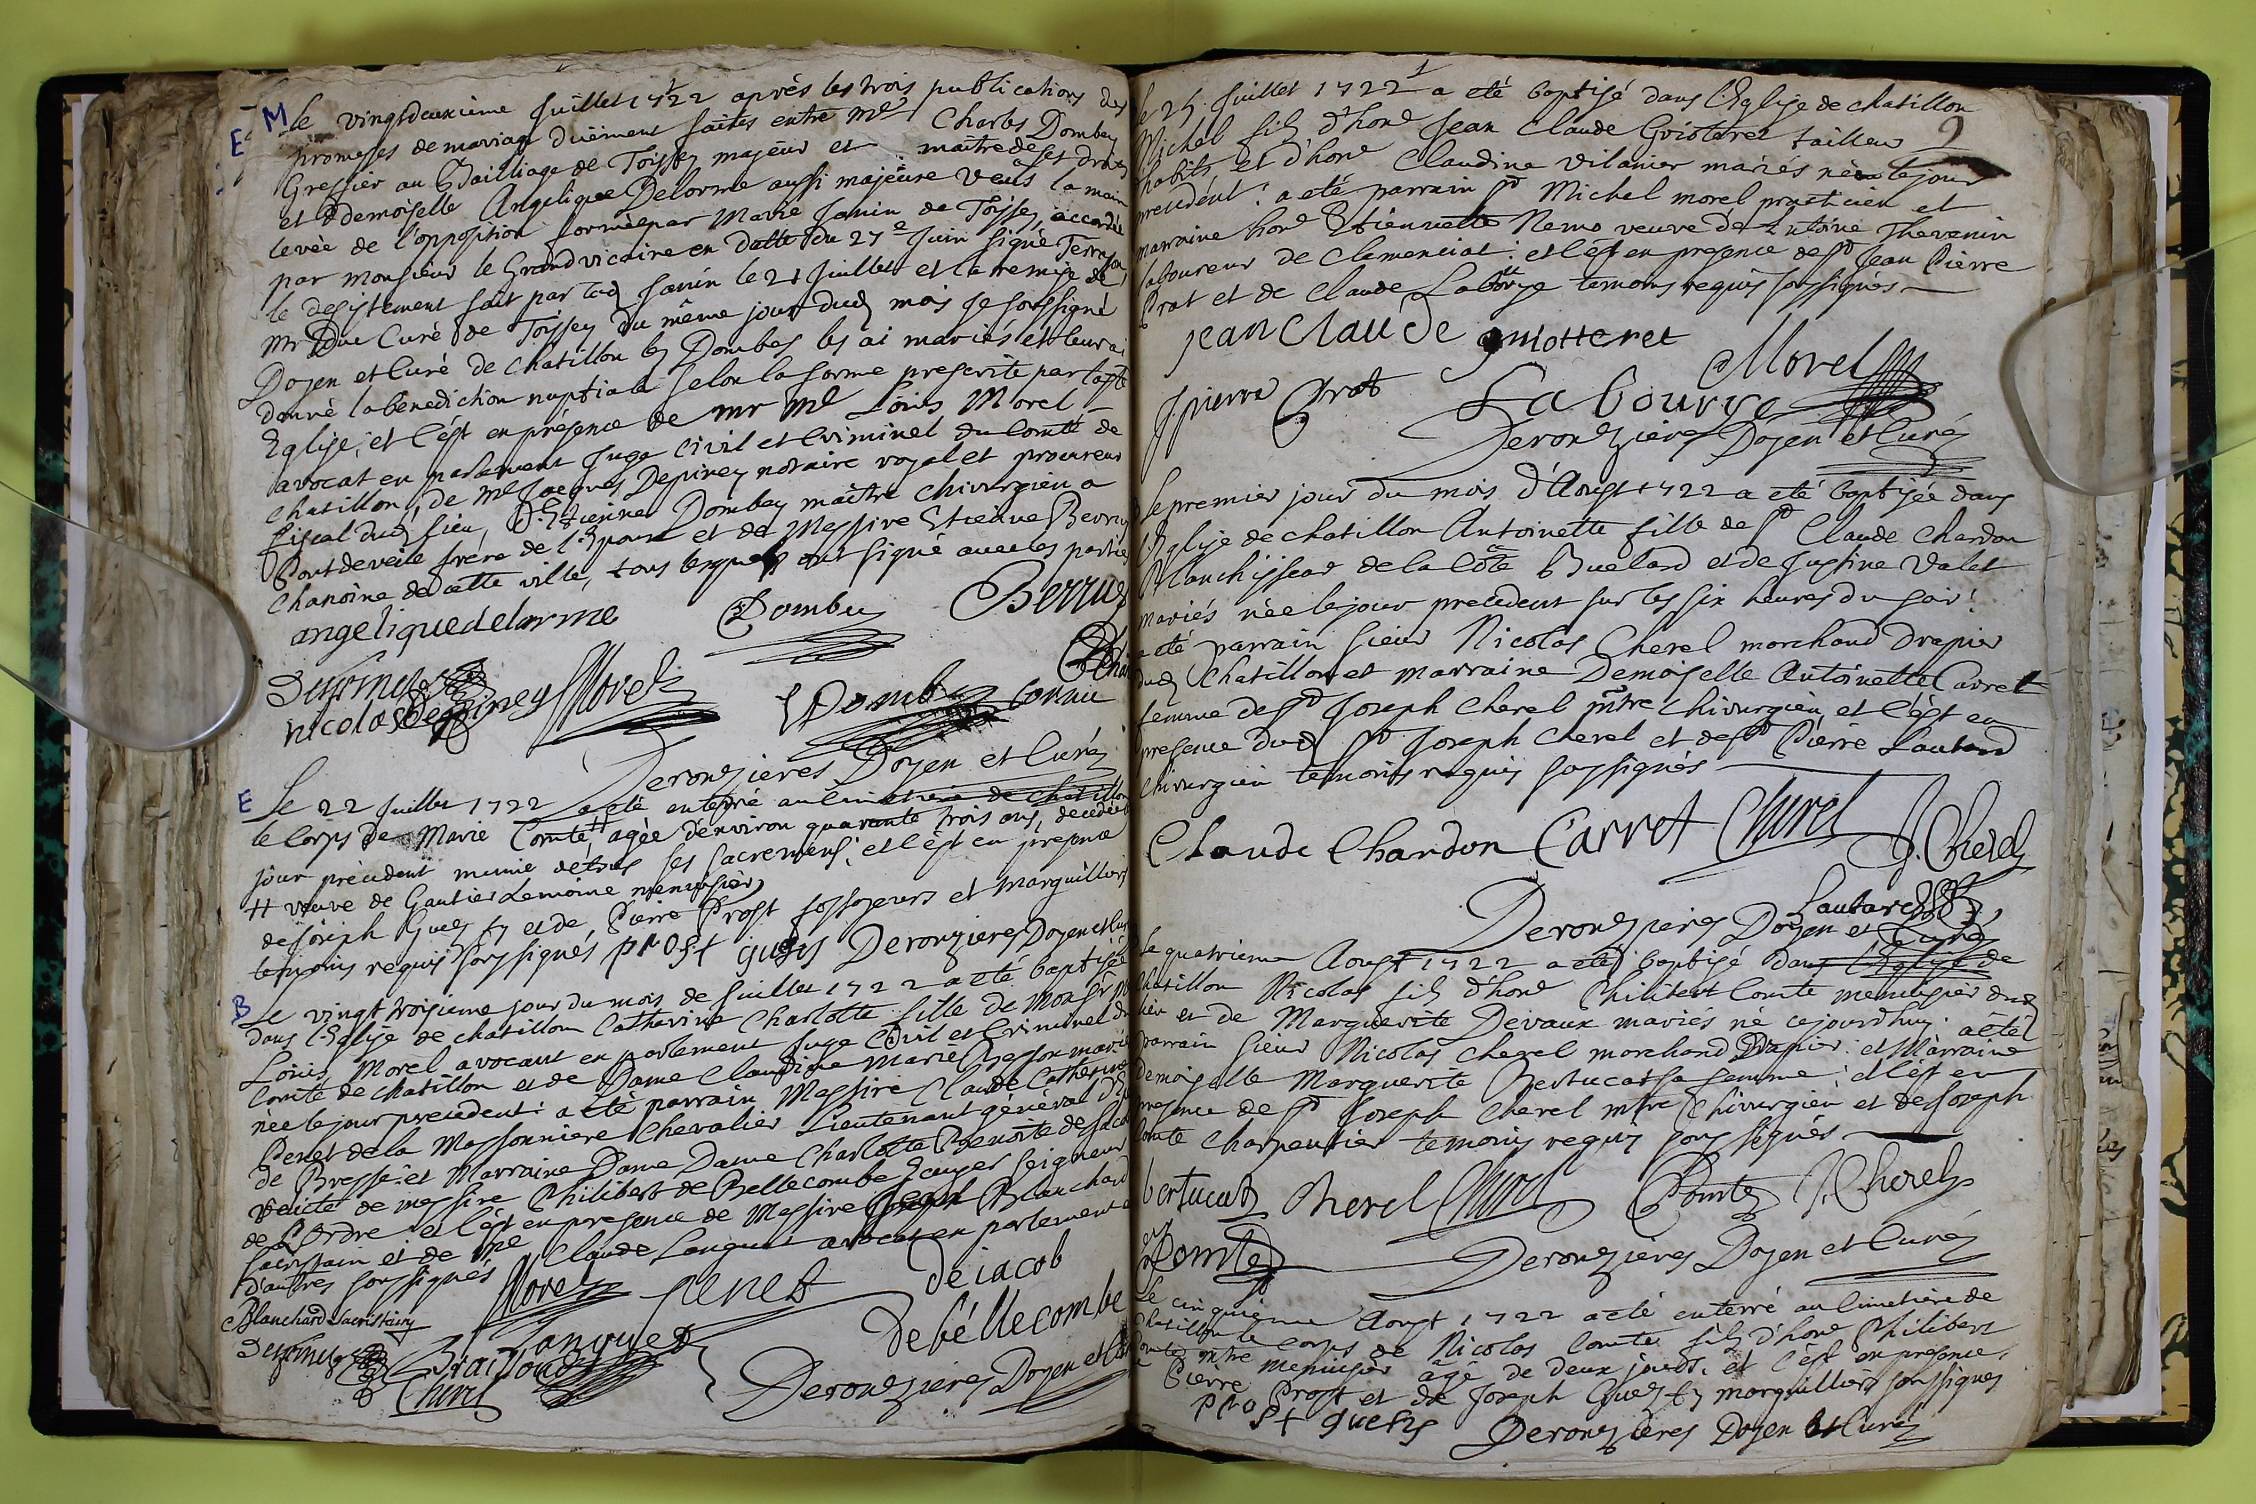 E M
Le vingtdeuxième Juillet 1722 après les trois publications des
promesses de mariage duëment faites entre Me Charles Dombey
Greffier au Bailliage de Toissey majeur et maître de ses droits
et Demoiselle Angelique Delorme aussi majeure veüs la main
levée de l'opposition formée par Marie Jamin de Toissey, accordée
par Monsieur le Grand vicaire en datte du 27e Juin signé Terrasson
le desistement fait par lad Jamin le 21 Juillet et la remise de
Mr Due Curé de Toissey du même jour dud mois Je soussigné
Doyen et Curé de Chatillon les Dombes les ai mariés et leur ai
donné la bénediction nuptiale selon la forme prescrite par lad
Eglise; et c'est en présence de mr Me Loüis Morel
avocat en parlement Juge Civil et Criminel du Comté de
chatillon, de Me Jacques Depiney notaire royal et procureur
fiscal dud lieu, Sr Etienne Dombey maître chirurgien a
Pontdeveile frère de l'Epoux et de Messire Etienne Berruy
chanoine de cette ville, tous lesquels ont signé avec les parties
angelique delorme Dombey Berruy
Morel Dombey
nicolas Depiney cornu
Derongieres Doyen et Curé
E
Le 22 Juillet 1722 a eté enterré au Cimetiere de Chatillon
le corps de Marie Comte # agée d'environ quarante trois ans, decedée le
jour précedent munie de tous ses sacremens; et c'est en presence
# veuve de Gautier Lemoine menuisier
de Joseph Guety et de Pierre Prost fossoyeurs et marguilliers
temoins requis soussignés prost guetys Derongieres Doyen et Curé
B
Le vingt troisieme jour du mois de Juillet 1722 a eté baptisée
dans l'Eglise de chatillon Catherine Charlotte fille de Monsr Me
Loüis Morel avocaut en parlement Juge Civil et Criminel du
Comté de chatillon et de Dame Claudine Marie Besson mariés
née le jour precedent: a eté parrain Messire Claude Catherine
Penet de la Massonniere Chevalier Lieutenant général d'Ep
de Bresse: et Marraine Dame Dame Charlotte Benoite de Jacob
veuve de messire Philibert de Bellecombe Ecuyer Seigneur
de L'Ordre et c'est en presence de Messire Joseph Blanchard
Sacristain et de me Claude Languet avocat en parlement et
d'autres soussignés Morel penet de iacob
Blanchard Sacristain Languet de bellecombe
Braillond
Churel Derongieres Doyen et Curé
Le 25 Juillet 1722 a eté baptisé dans l'Eglise de chatillon
Michel fils d'hone Jean Claude Guiotteret tailleur
habits, et d'hone Claudine Vilanier mariés né le jour
precedent: a eté parrain Sr Michel morel practicien et
marraine hone Etiennette Nemo veuve de Antoine Thevenin
laboureur de Clemenciat: et c'est en presence de Sr Jean Pierre
Prat et de Claude Labourse temoins requis soussignés
jean claude guiotteret
Morel
J pierre Prat Labourse
Derongieres Doyen et Curé
Le premier jour du mois d'Aoust 1722 a eté baptisée dans
l'Eglise de chatillon Antoinette fille de Sr Claude Chardon
Blanchisseur de la Côte à Buelard et de Justine Valet
mariés née le jour precedent sur les six heures du soir:
a eté parrain sieur Nicolas Cherel marchand drapier
dud Chatillon et marraine Demoiselle Antoinette Carret
femme de Sr Joseph Cherel mtre chirurgien et c'est en
presence dud Sr Joseph Cherel et de Sr Pierre Lautard
chirurgien temoins requis soussignés
Claude Chardon Carret Churel J. Cherel
Lautard
Derongieres Doyen et Curé
Le quatrieme Aoust 1722 a eté baptisé dans l'Eglise de
Chatillon Nicolas fils d'hone Philibert Comte menuisier dud
lieu et de Marguerite Devaux mariés né cejourd'huy: a eté
parrain sieur Nicolas Cherel marchand Drapier: et Marraine
Demoiselle Marguerite Bertucat sa femme; et c'est en
presence de Sr Joseph Cherel mtre chirurgien et de Joseph
Comte Charpentier temoins requis soussignés
bertucat Cherel Churel Comte J. Cherel
Comte Derongieres Doyen et Curé
Le cinquieme Aoust 1722 a eté enterré au Cimetière de
Chatillon le corps de Nicolas Comte fils d'hone Philibert
Comte mtre menuisier âgé de deux jours. et c'est en presence
Pierre Prost et de Joseph Guety marguilliers soussignés
prost guetys Derongieres Doyen et Curé